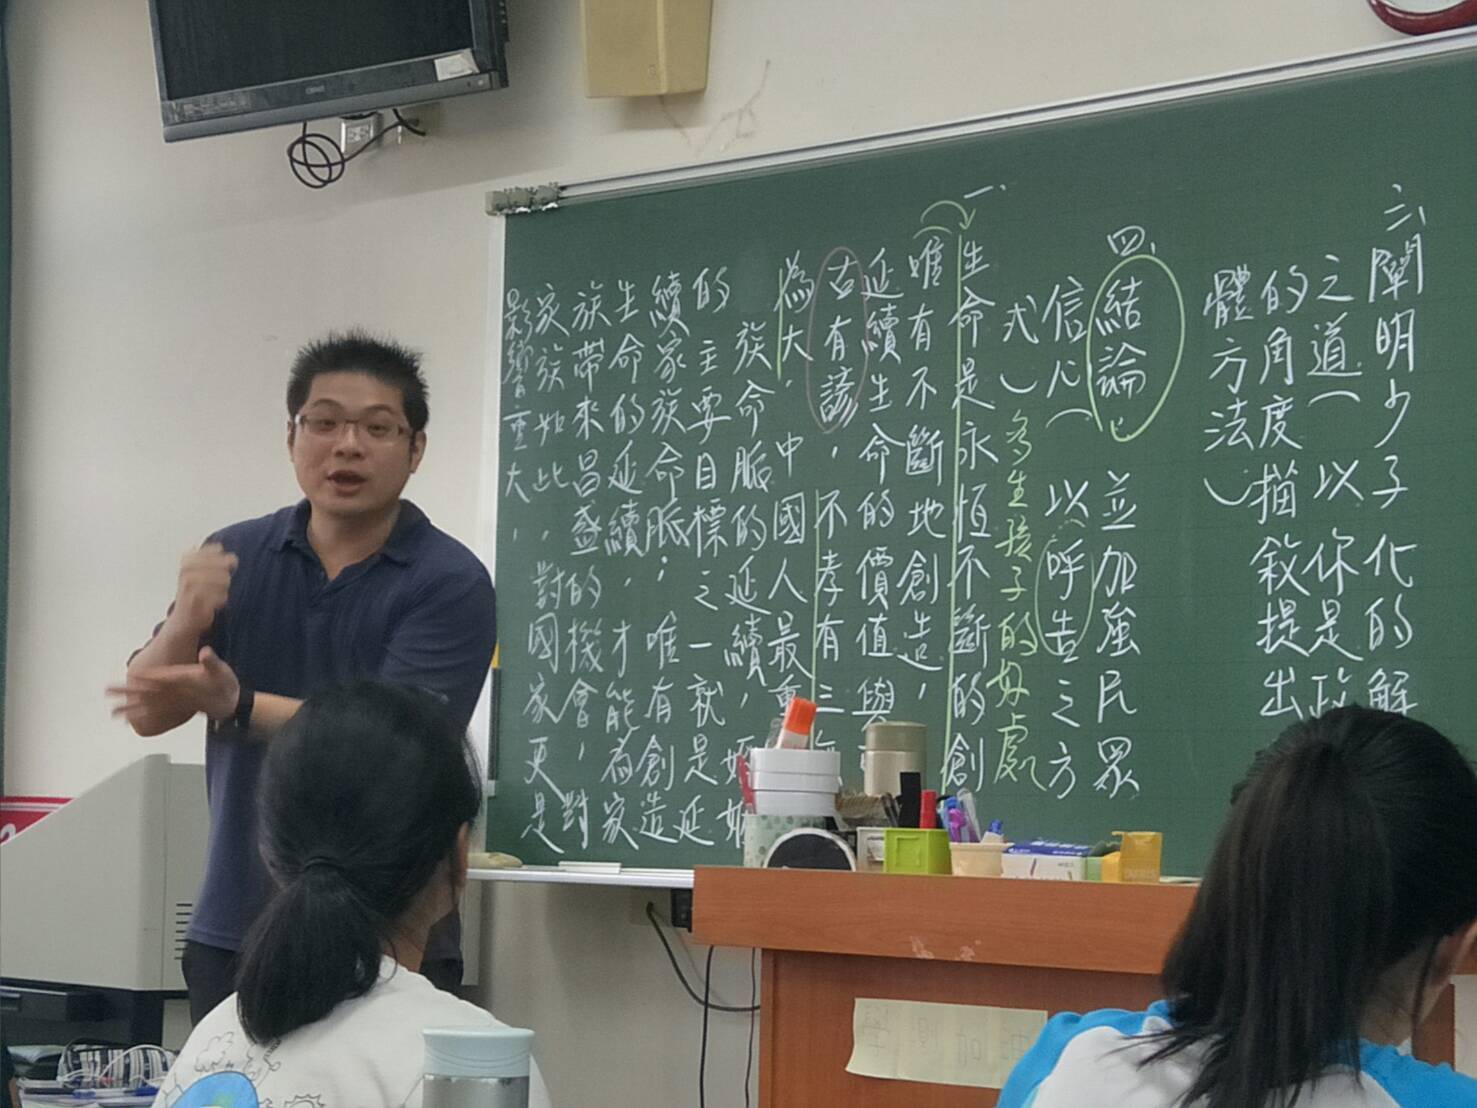 三、闡明少子化的解
之道（以你是政
的角度描敘提出
體方法）
四、結論 並加強民眾
信心（以呼告之方
式） 多生孩子的好處
一、
生命是永恆不斷的創
唯有不斷地創造，
延續生命的價值與
古有諺，不孝有三
為大，中國人最重
族命脈的延續，婚姻
的主要目標之一就是延
續家族命脈；唯有創造
生命的延續，才能為家
族帶來昌盛的機會，對
家族如此，對國家更是
影響重大，